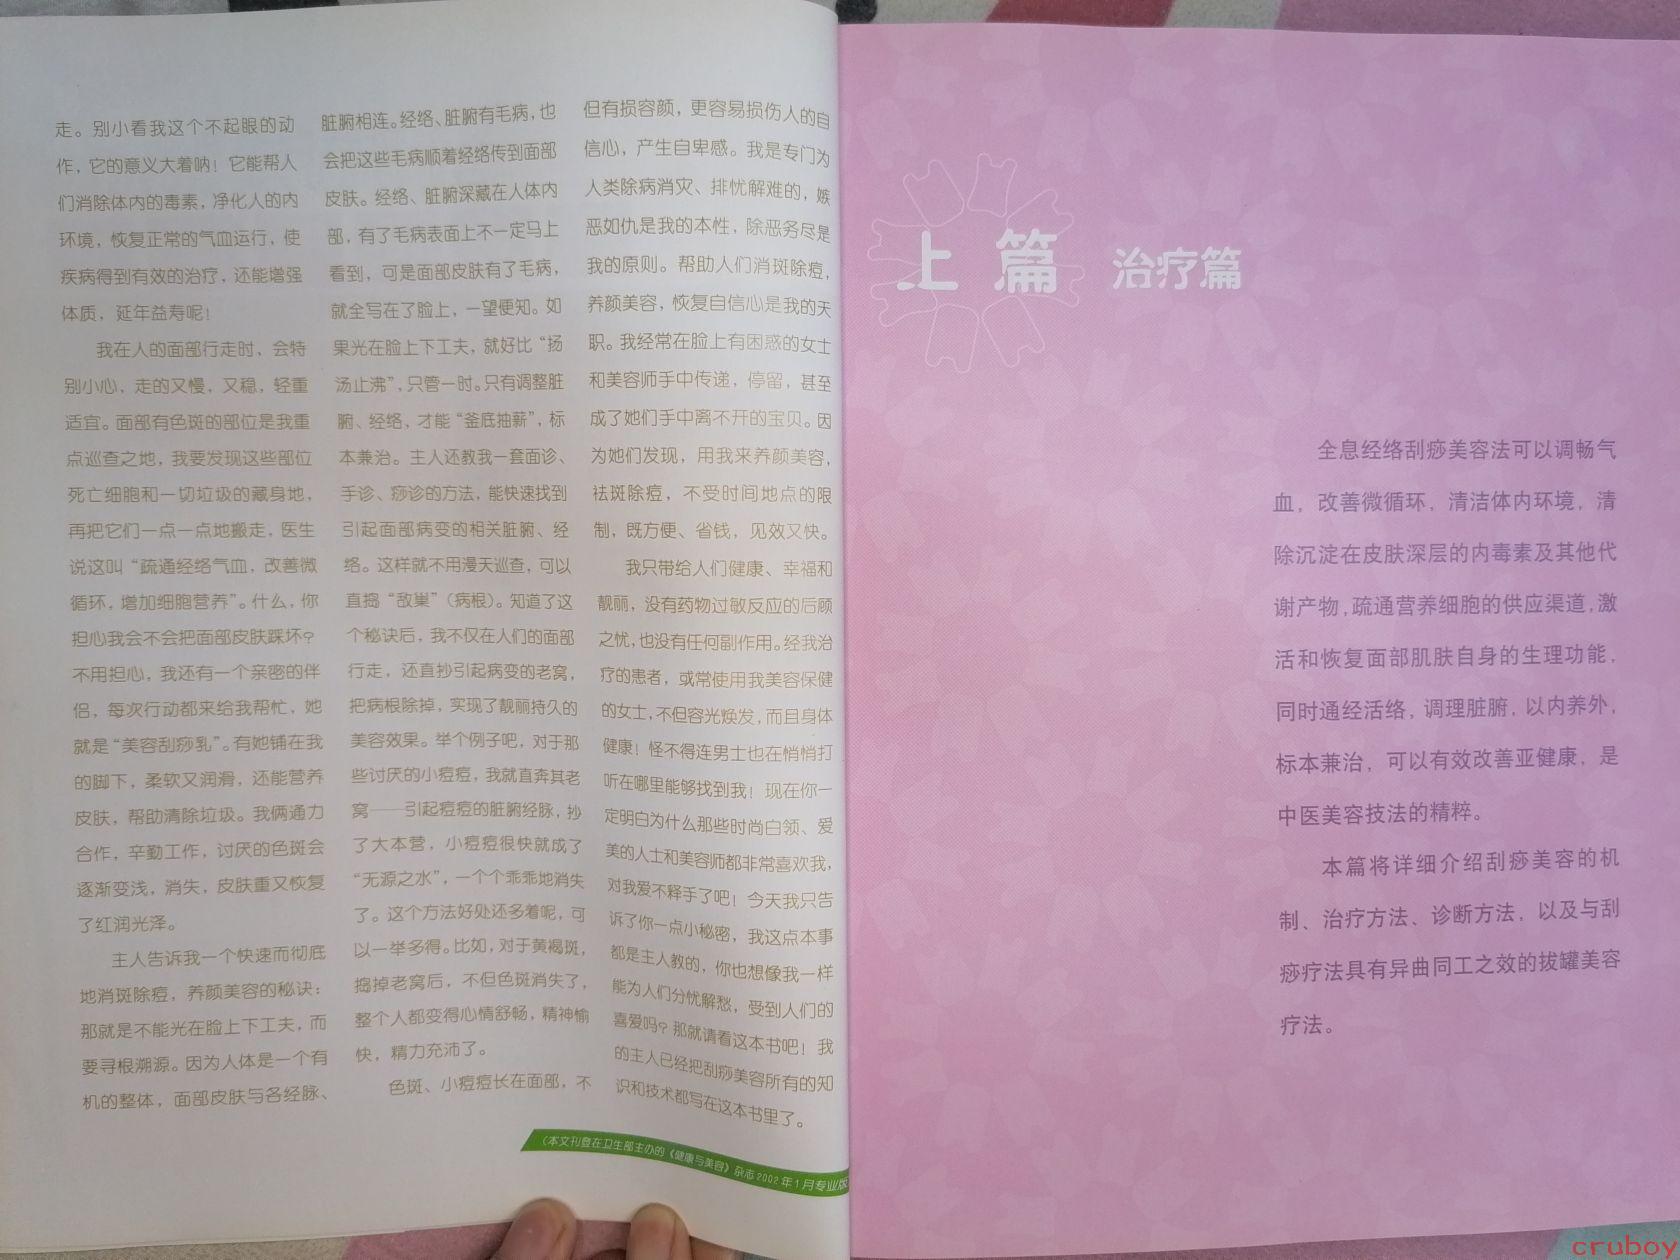 走。别小看我这个不起眼的动
作，它的意义大着呐！它能帮人
们消除体内的毒素，净化人的内
环境，恢复正常的气血运行，使
疾病得到有效的治疗，还能增强
体质，延年益寿呢！
我在人的面部行走时，会特
别小心，走的又慢，又稳，轻重
适宜。面部有色斑的部位是我重
点巡查之地，我要发现这些部位
死亡细胞和一切垃圾的藏身地，
再把它们一点一点地搬走，医生
说这叫“疏通经络气血，改善微
循环，增加细胞营养”。什么，你
担心我会不会把面部皮肤踩坏？
不用担心，我还有一个亲密的伴
侣，每次行动都来给我帮忙，她
就是“美容刮痧乳”。有她铺在我
的脚下，柔软又润滑，还能营养
皮肤，帮助清除垃圾。我俩通力
合作，辛勤工作，讨厌的色斑会
逐渐变浅，消失，皮肤重又恢复
了红润光泽。
主人告诉我一个快速而彻底
地消斑除痘，养颜美容的秘诀：
那就是不能光在脸上下工夫，而
要寻根溯源。因为人体是一个有
机的整体，面部皮肤与各经脉、
脏腑相连。经络、脏腑有毛病，也
会把这些毛病顺着经络传到面部
皮肤。经络、脏腑深藏在人体内
部，有了毛病表面上不一定马上
看到，可是面部皮肤有了毛病，
就全写在了脸上，一望便知。如
果光在脸上下工夫，就好比“扬
汤止沸”，只管一时。只有调整脏
腑、经络，才能“釜底抽薪”，标
本兼治。主人还教我一套面诊、
手诊、痧诊的方法，能快速找到
引起面部病变的相关脏腑、经
络。这样就不用漫天巡查，可以
直捣“敌巢”（病根）。知道了这
个秘诀后，我不仅在人们的面部
行走，还直抄引起病变的老窝，
把病根除掉，实现了靓丽持久的
美容效果。举个例子吧，对于那
些讨厌的小痘痘，我就直奔其老
窝——引起痘痘的脏腑经脉，抄
了大本营，小痘痘很快就成了
“无源之水”，一个个乖乖地消失
了。这个方法好处还多着呢，可
以一举多得。比如，对于黄褐斑，
捣掉老窝后，不但色斑消失了，
整个人都变得心情舒畅，精神愉
快，精力充沛了。
色斑、小痘痘长在面部，不
但有损容颜，更容易损伤人的自
信心，产生自卑感。我是专门为
人类除病消灾、排忧解难的，嫉
恶如仇是我的本性，除恶务尽是
我的原则。帮助人们消斑除痘，
养颜美容，恢复自信心是我的天
职。我经常在脸上有困惑的女士
和美容师手中传递，停留，甚至
成了她们手中离不开的宝贝。因
为她们发现，用我来养颜美容，
祛斑除痘，不受时间地点的限
制，既方便、省钱，见效又快。
我只带给人们健康、幸福和
靓丽，没有药物过敏反应的后顾
之忧，也没有任何副作用。经我治
疗的患者，或常使用我美容保健
的女士，不但容光焕发，而且身体
健康！怪不得连男士也在悄悄打
听在哪里能够找到我！现在你一
定明白为什么那些时尚白领、爱
美的人士和美容师都非常喜欢我，
对我爱不释手了吧！今天我只告
诉了你一点小秘密，我这点本事
都是主人教的，你也想像我一样
能为人们分忧解愁，受到人们的
喜爱吗？那就请看这本书吧！我
的主人已经把刮痧美容所有的知
识和技术都写在这本书里了。
（本文刊登在卫生部主办的《健康与美容》杂志2002年1月专业版
上篇 治疗篇
全息经络刮痧美容法可以调畅气
血，改善微循环，清洁体内环境，清
除沉淀在皮肤深层的内毒素及其他代
谢产物，疏通营养细胞的供应渠道，激
活和恢复面部肌肤自身的生理功能，
同时通经活络，调理脏腑，以内养外，
标本兼治，可以有效改善亚健康，是
中医美容技法的精粹。
本篇将详细介绍刮痧美容的机
制、治疗方法、诊断方法，以及与刮
痧疗法具有异曲同工之效的拔罐美容
疗法。
cruboy